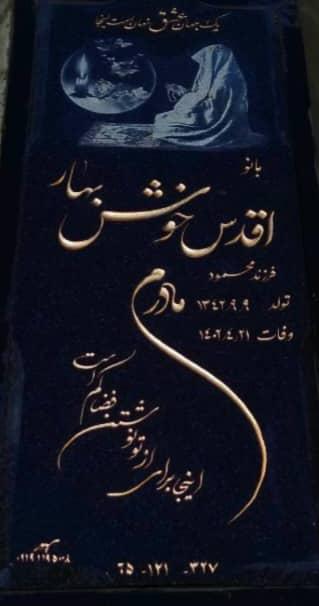 یک جهان عشق نهان است اینجا
بانو
اقدس خوش بهار
فرزند محمود
تولد ۱۳۴۲٫۹٫۹
وفات ۱۴۰۲٫۴٫۲۱
مادرم
اینجا برای از تو نوشتن فضا کم است
۳۲۷- ۱۲۱- ۲۵